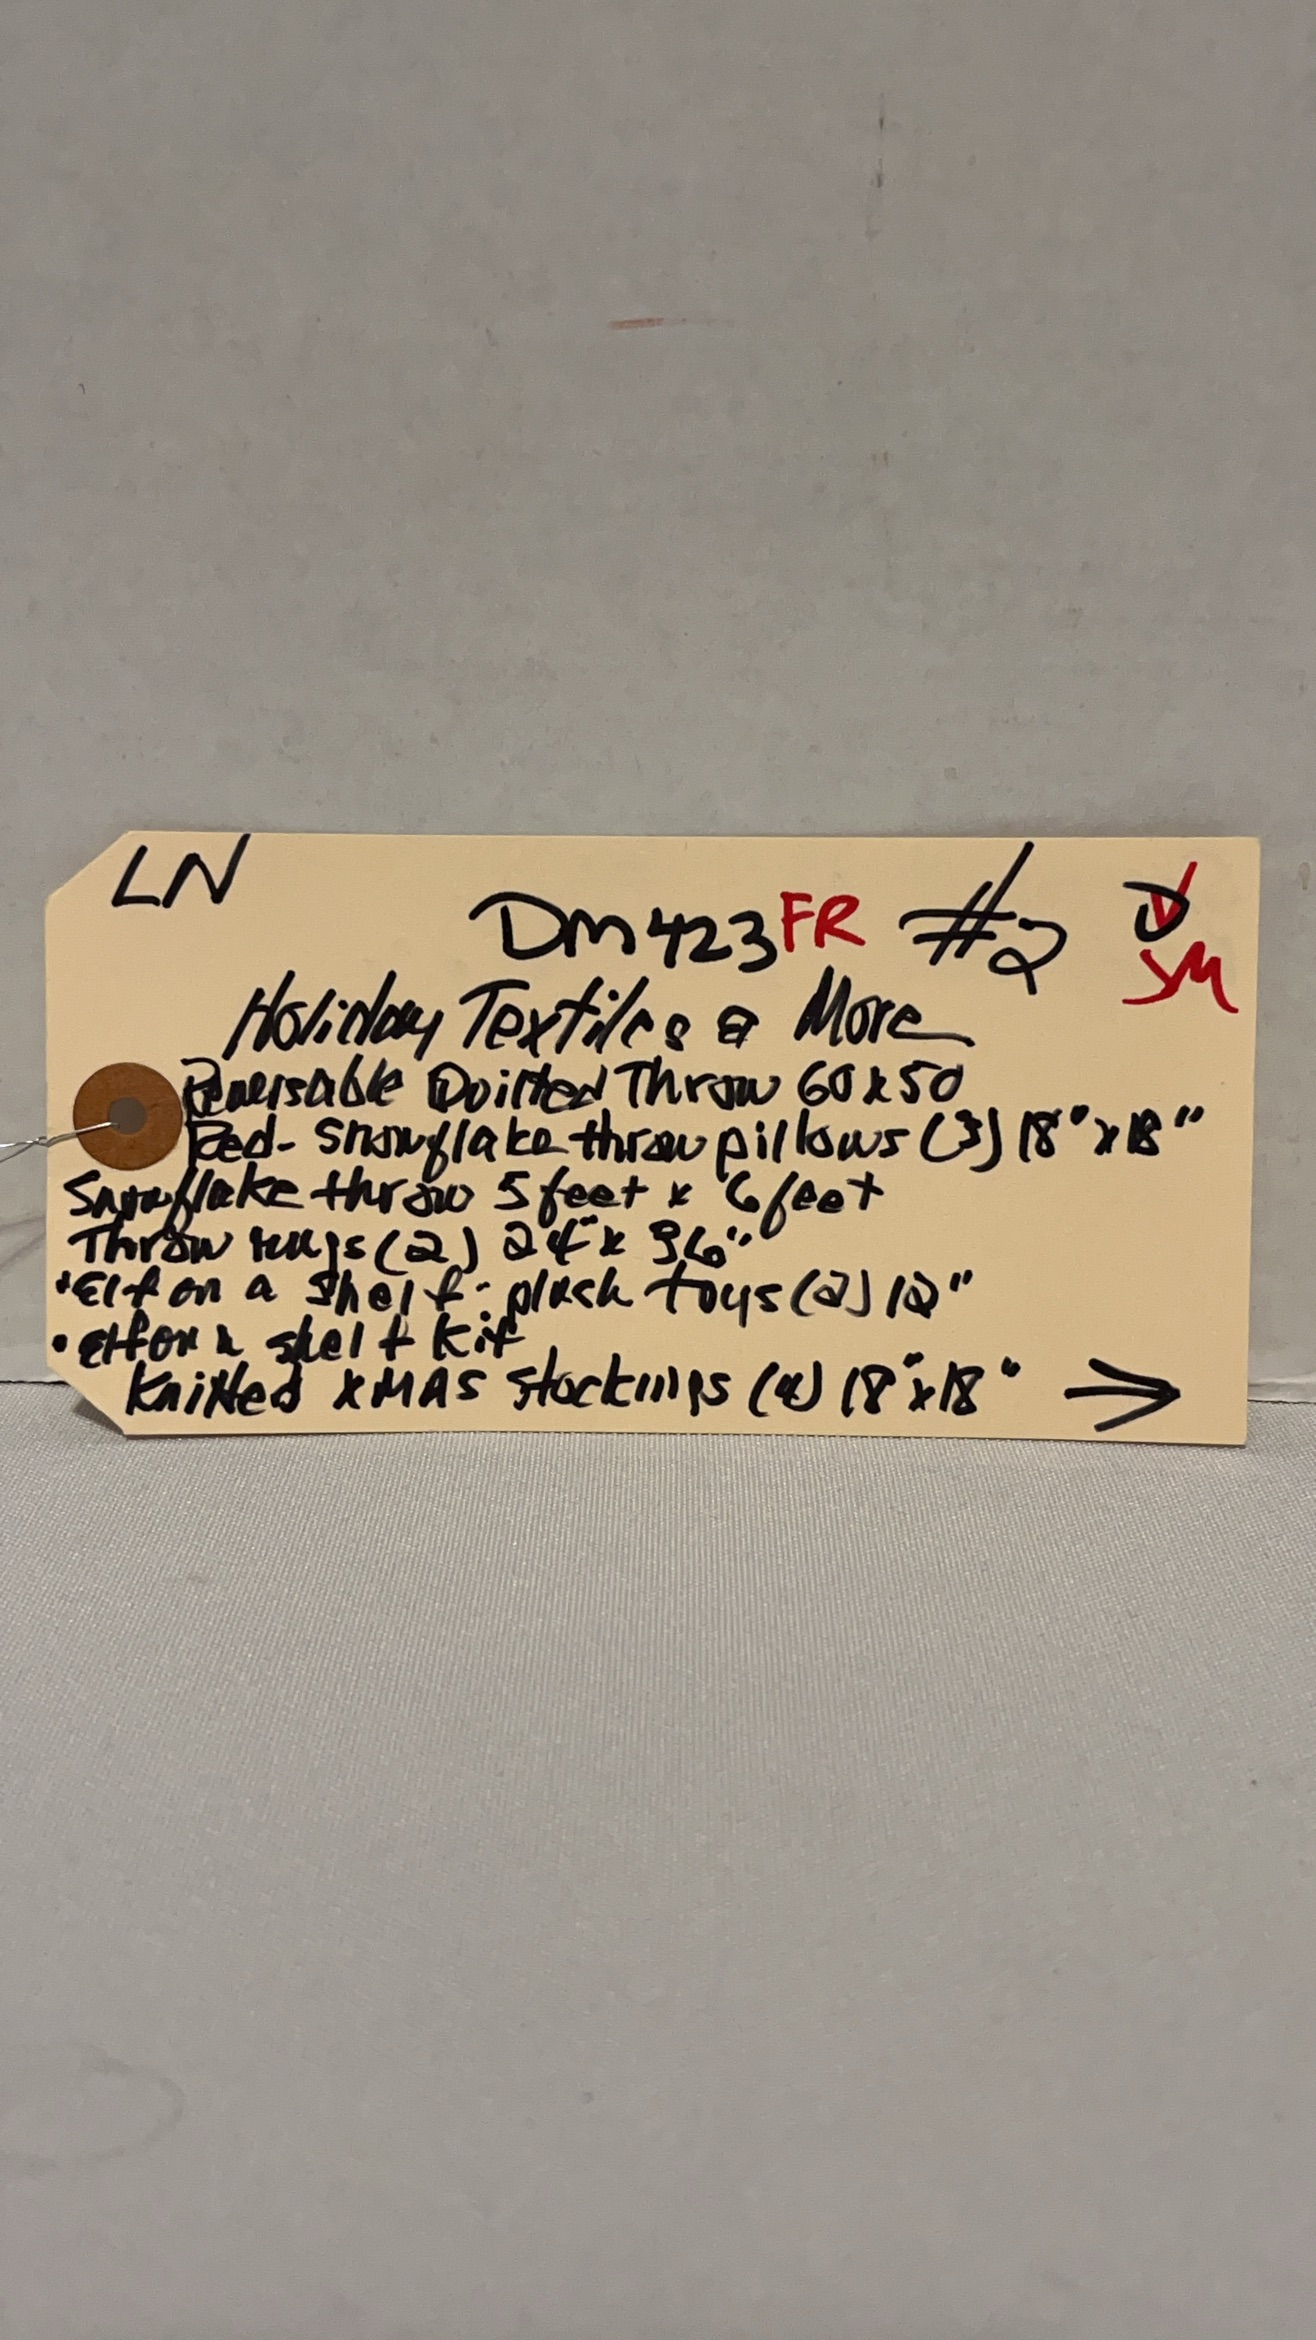 LN
DM423 FR #2 D
SM
Holiday Textiles & More
Reversable Quilted Throw 60x50
Red- Snowflake throw pillows (3) 18" x 18"
Snowflake throw 5 feet x 6 feet
Throw rugs (2) 24" x 36"
• Elf on a Shelf: plush toys (2) 12"
• Elf on a shelf Kit
Knitted XMAS Stockings (4) 18" x 18" →